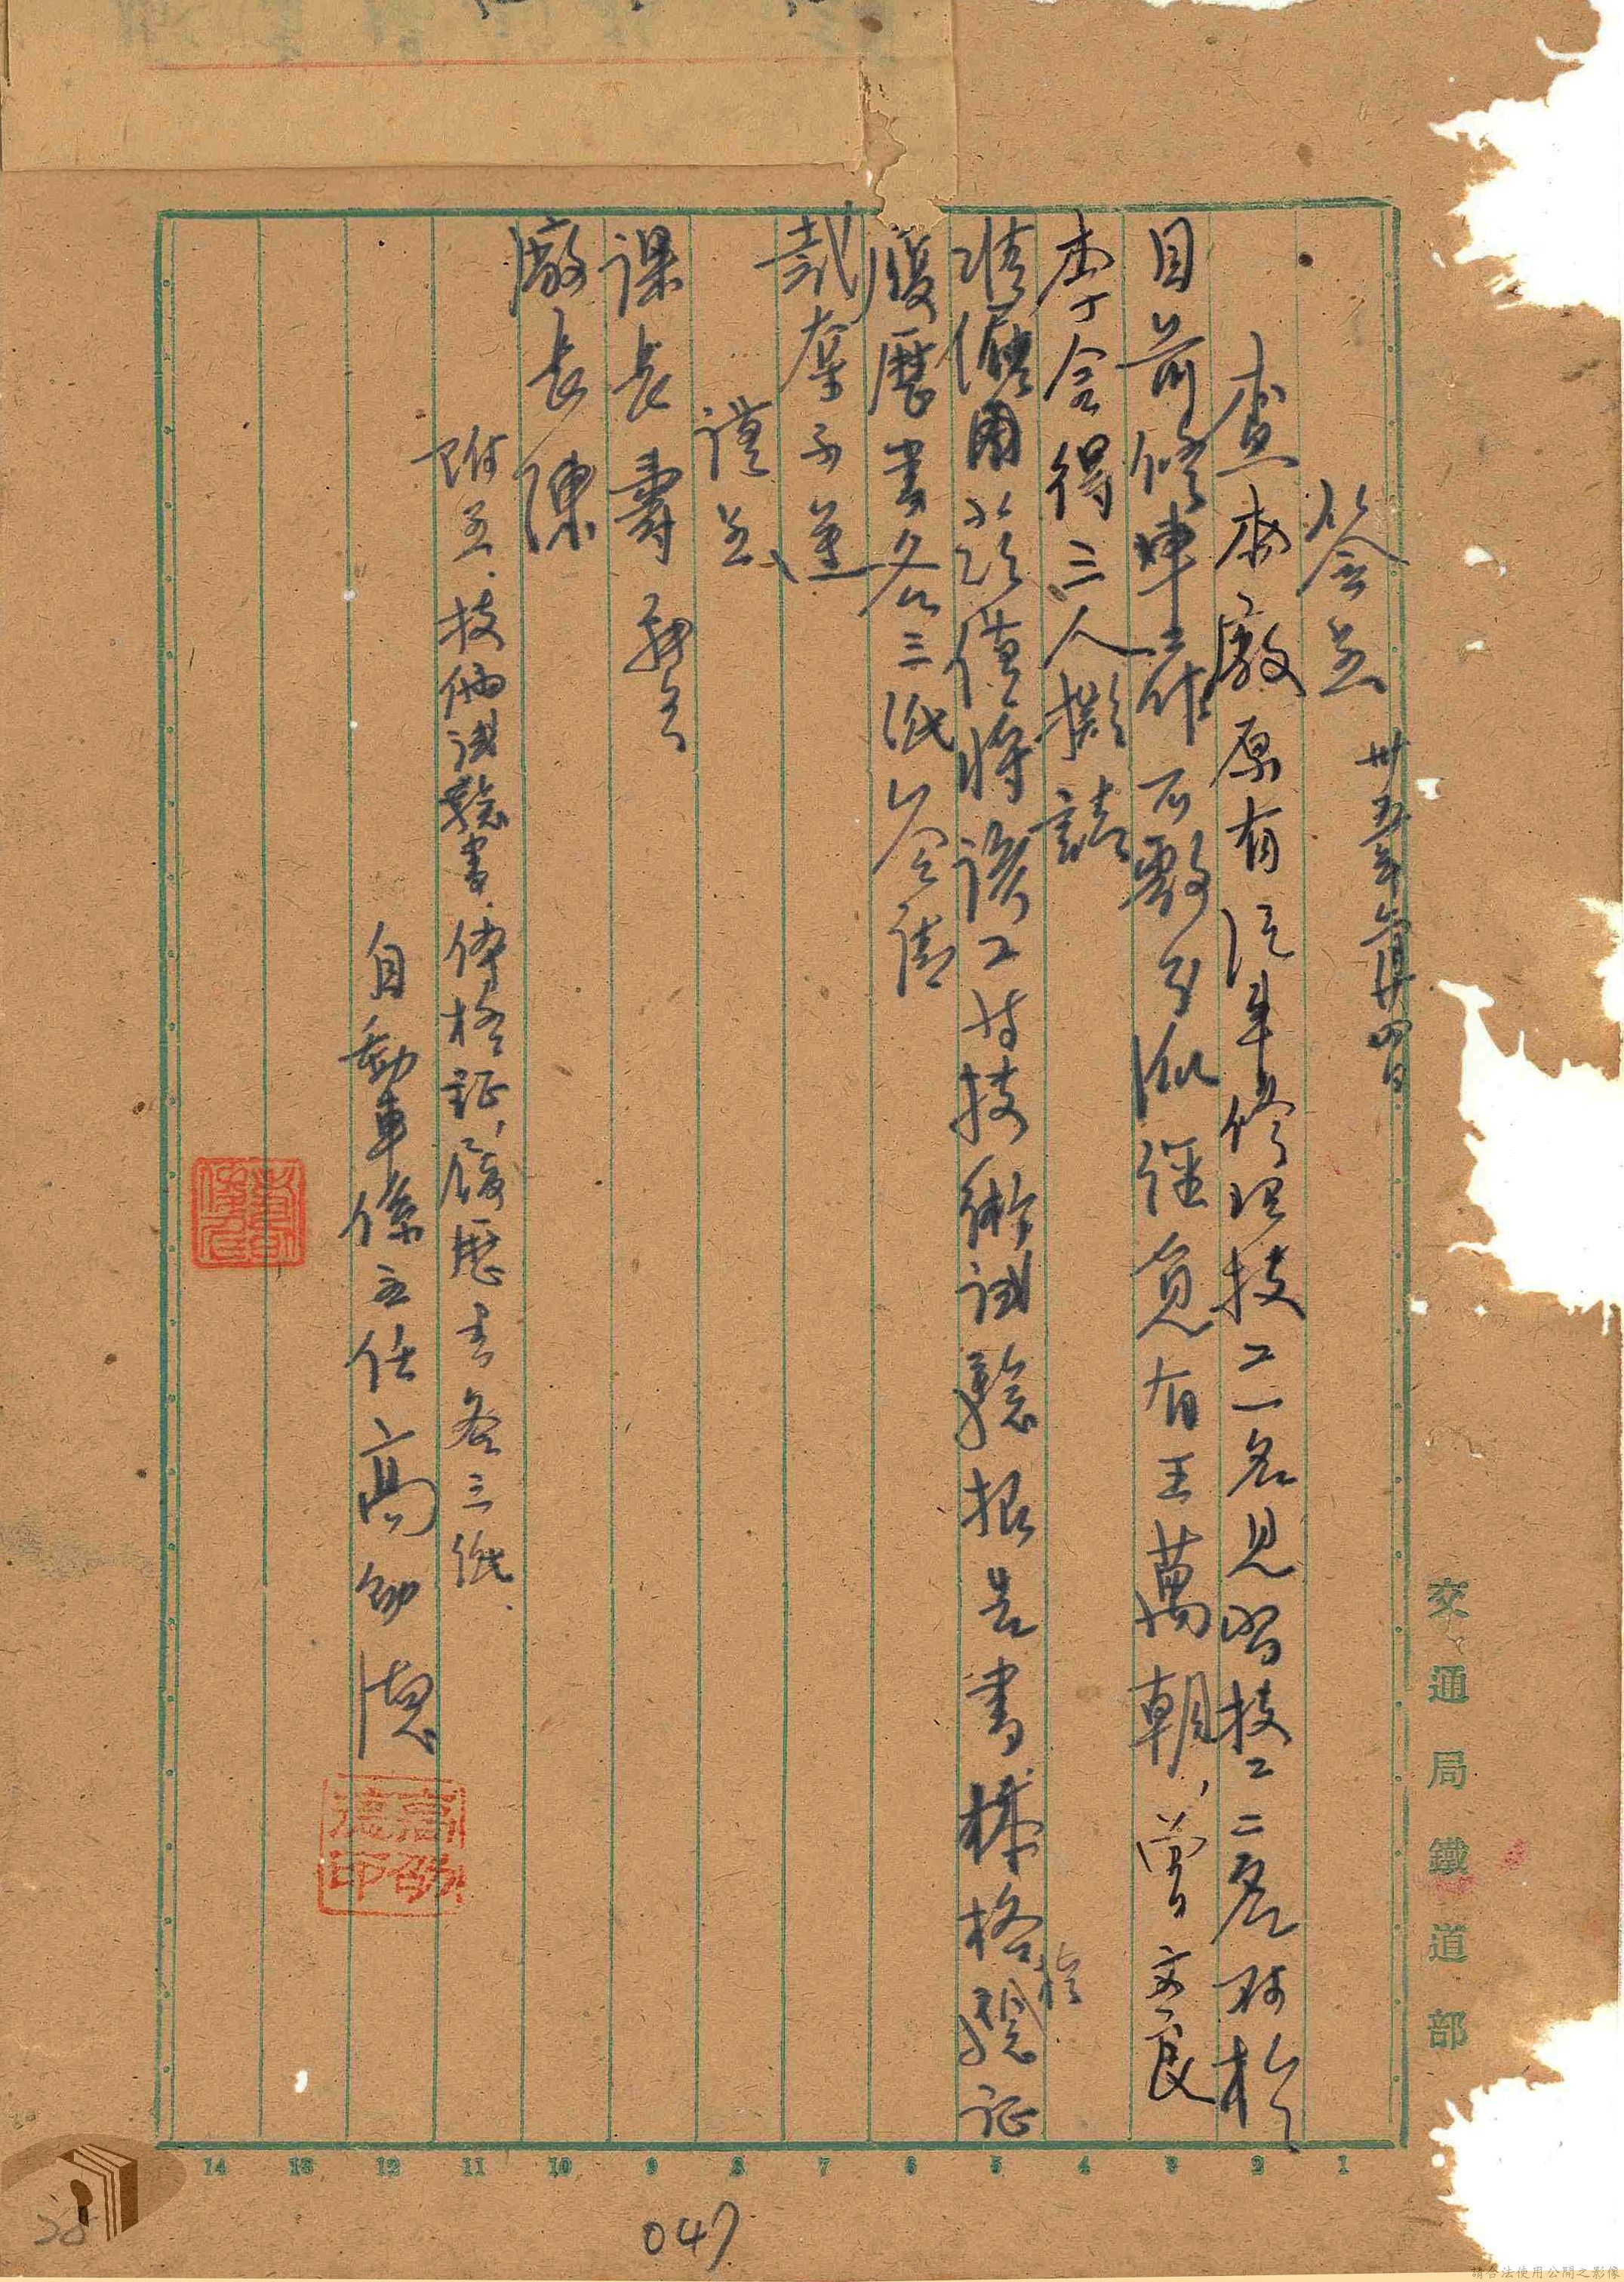 簽呈 卅五年 月廿四日
查本廠原有汽車修理技工一名見習技工二名對於
目前修車工作不敷分派經負有王萬朝，曾文良
李金得三人擬請
准僱用以茲僅將該工等技術試驗报告書体格證
履歷書各三紙 簽請
裁奪示遵
謹呈
課長壽
廠長陳
附呈．技術試驗書．体格証，履歷書各三紙．
自動車係主任高劭德
高劭德印
交通局鐵道部
14 13 12 11 10 9 8 7 6 5 4 3 2 1
047
請合法使用公開之影像